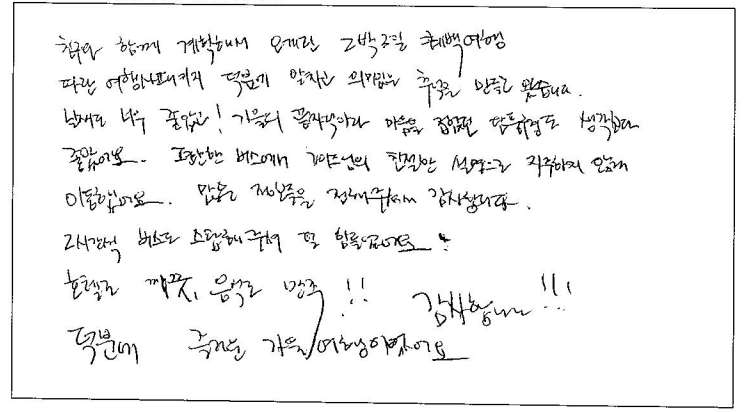 친구와 함께 계획해서 오게된 2박3일 태백여행
파란 여행사패키지 덕분에 알차고 의미있는 추억을 만들고 왔습니다.
날씨도 너무 좋았고! 가을의 끝자락이라 마음을 접었던 단풍구경도 생각보다
좋았어요. 편안한 버스에서 가이드님의 친절한 설명으로 지루하지 않게
이동했어요. 많은 지식을 전해주셔서 감사합니다.
2시간씩 버스도 스탑해주셔서 덜 힘들었어요!
호텔도 깨끗, 음식도 만족!! 감사합니다!!!
덕분에 즐거운 가을여행이었어요